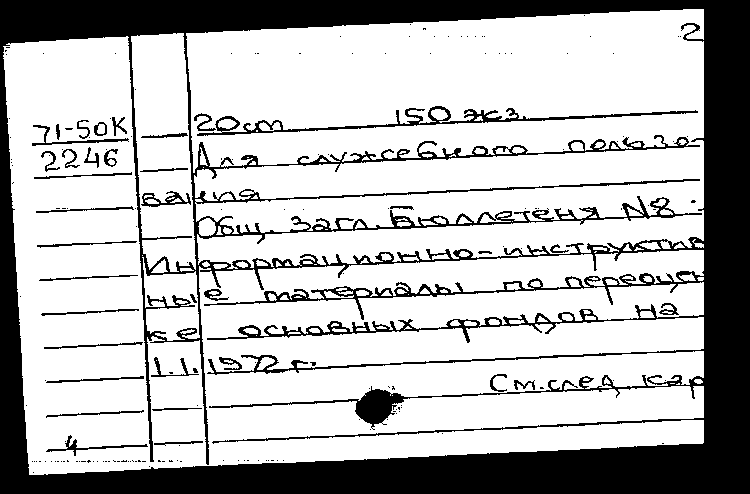 2
71-50К 20 см 150 экз.
2246 Для служебного пользо-
вания
Общ. загл. Бюллетеня N8:
Информационно-инструктив
ные материалы по переоцен
ке основных фондов на
1.1.1972 г.
См. след кар
4